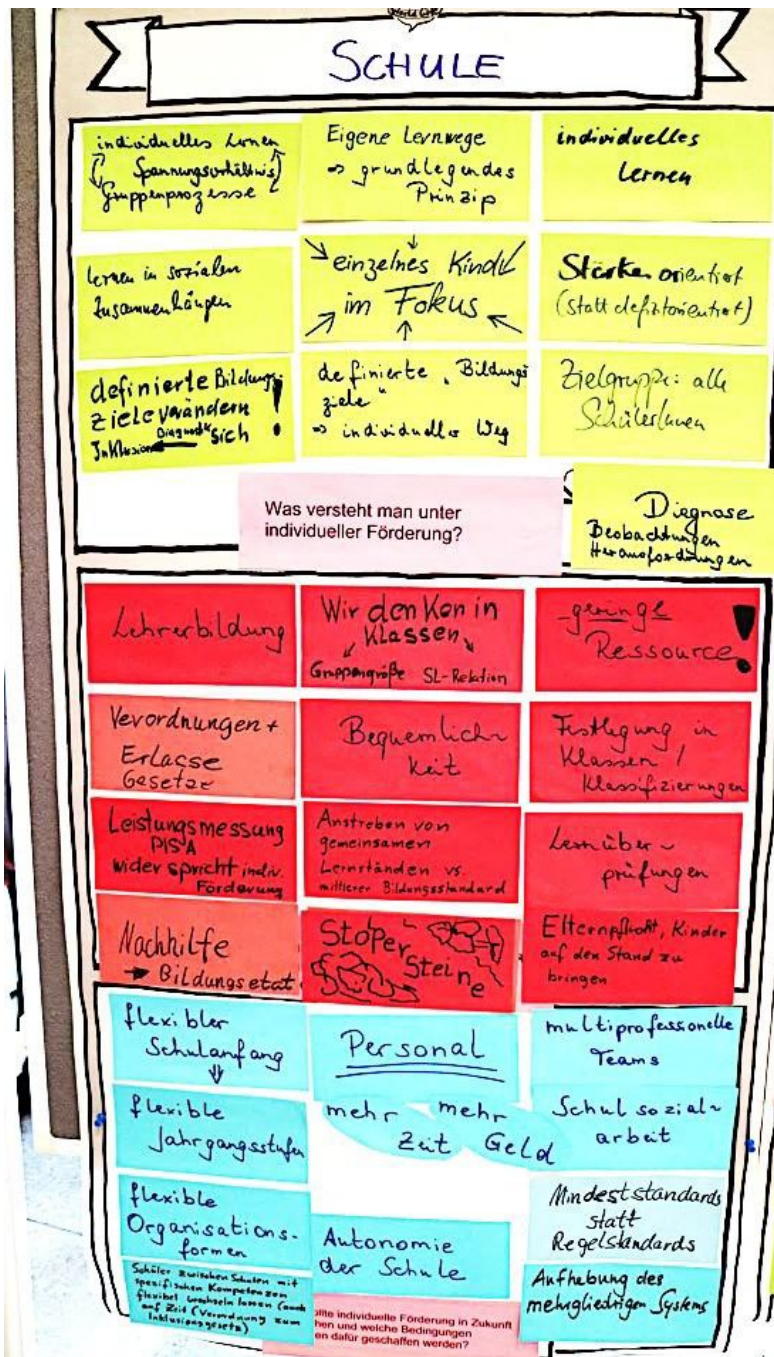 SCHULE
individuelles Lernen
Spannungsverhältnis
Gruppenprozesse
Eigene Lernwege
⇒ grundlegendes
Prinzip
individuelles
Lernen
lernen in sozialen
Zusammenhängen
einzelnes Kind
im Fokus
Stärkenorientiert
(statt defizitorientiert)
definierte Bildungs-
ziele verändern
sich!
Inklusion ← Diagnostik
definierte "Bildungs
ziele"
⇒ individueller Weg
Zielgruppe: alle
SchülerInnen
Was versteht man unter
individueller Förderung?
Diagnose
Beobachtungen
Herausforderungen
Lehrerbildung
Wir denken in
Klassen
Gruppengröße SL-Relation
-geringe
Ressource!
Verordnungen +
Erlasse
Gesetze
Bequemlich-
keit
Festlegung in
Klassen /
Klassifizierungen
Leistungsmessung
PISA
widerspricht indiv.
Förderung
Anstreben von
gemeinsamen
Lernständen vs.
mittlerer Bildungsstandard
Lernüber-
prüfungen
Nachhilfe
→ Bildungsetat
Stolper
Steine
Elternpflicht, Kinder
auf den Stand zu
bringen
flexibler
Schulanfang
⇓
Personal
multiprofessionelle
Teams
flexible
Jahrgangsstufen
mehr
Zeit
mehr
Geld
Schulsozial-
arbeit
flexible
Organisations-
formen
Autonomie
der Schule
Mindeststandards
statt
Regelstandards
Schüler zwischen Schulen mit
spezifischen Kompetenzen
flexibel wechseln lassen (auch
auf Zeit (Verordnung zum
Inklusionsgesetz)
Aufhebung des
mehrgliedrigen Systems
ollte individuelle Förderung in Zukunft
hen und welche Bedingungen
en dafür geschaffen werden?